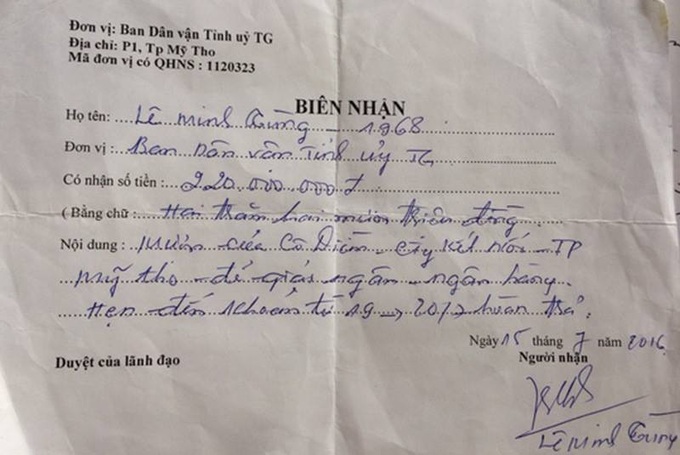 Đơn vị: Ban Dân vận Tỉnh uỷ TG
Địa chỉ: P1, Tp Mỹ Tho
Mã đơn vị có QHNS : 1120323
BIÊN NHẬN
Họ tên: Lê Minh Tùng - 1968
Đơn vị : Ban Dân vận Tỉnh ủy TG
Có nhận số tiền : 220.000.000đ
( Bằng chữ : Hai trăm hai mươi triệu đồng
Nội dung : Mượn của Cô Diễm - Cty Kết Nối - TP
Mỹ Tho - để giải ngân - ngân hàng.
Hẹn đến khoản từ 19 → 20/7 hoàn trả.
Ngày 15 tháng 7 năm 2016
Duyệt của lãnh đạo
Người nhận
Lê Minh Tùng